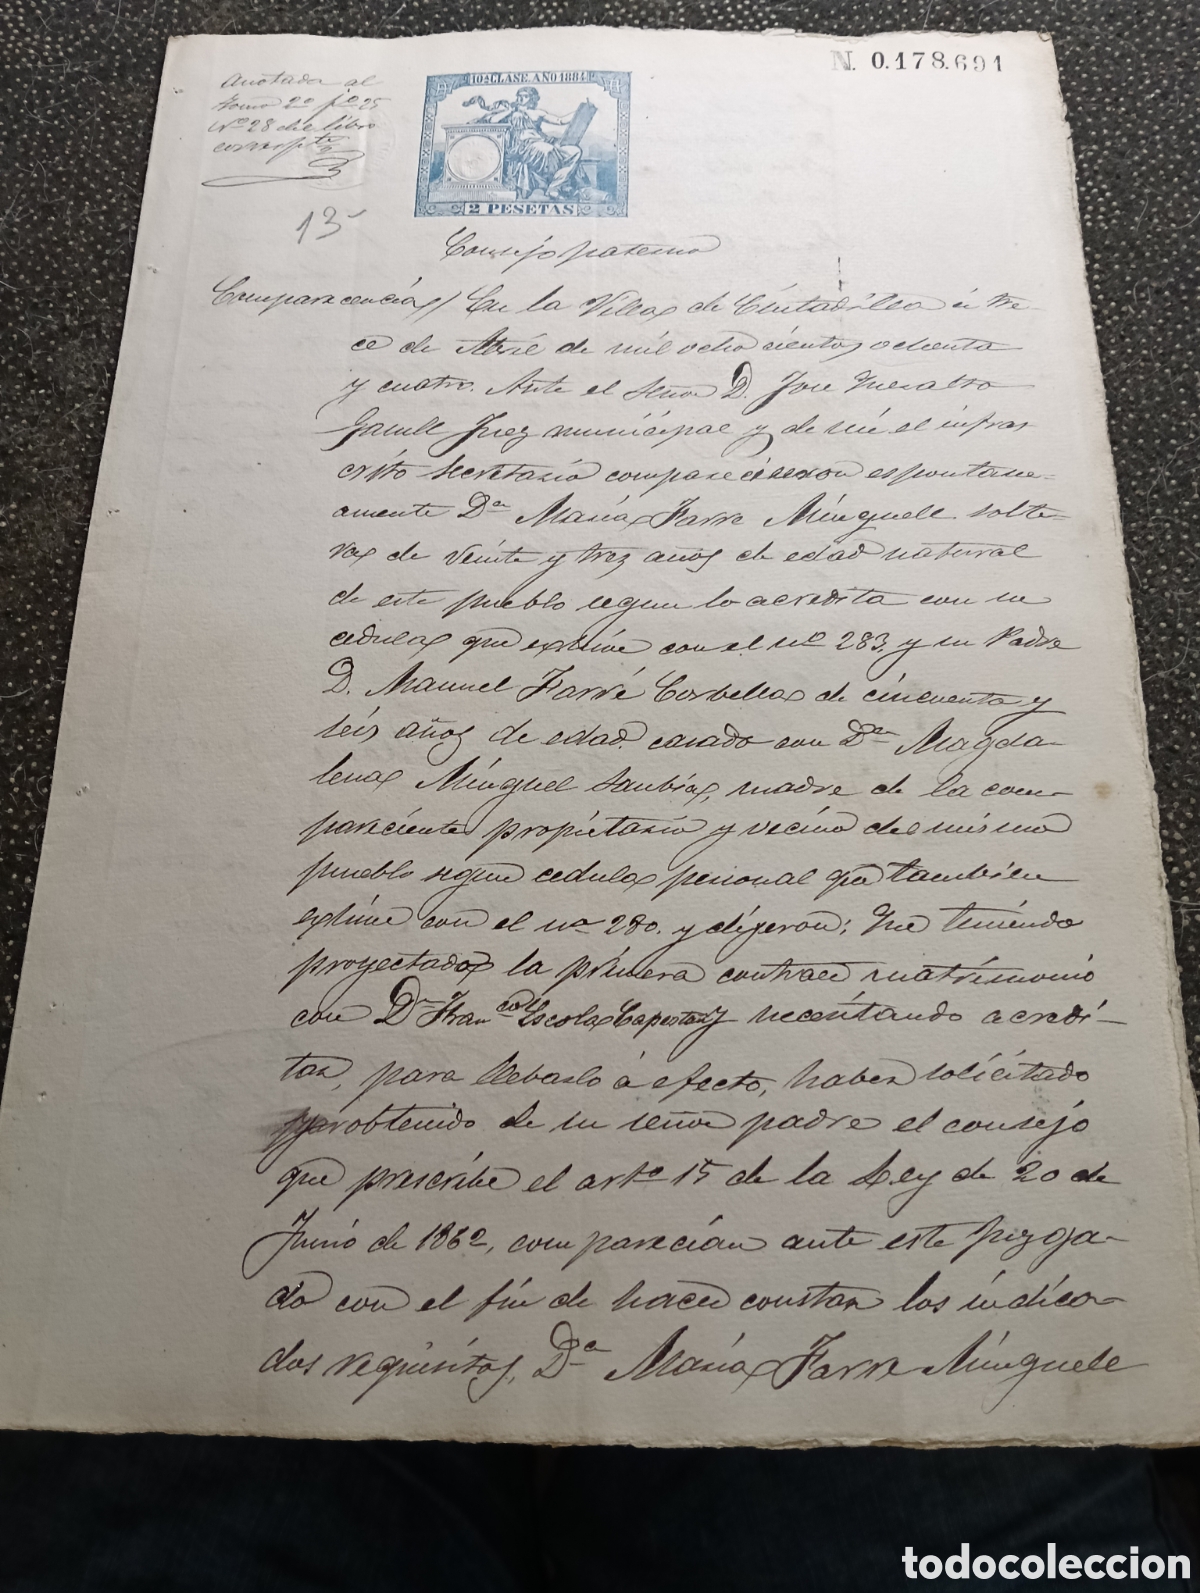 N. 0.178.691
Anotada al
tomo 2º fº 25
Nº 28 del libro
correspte
10ª CLASE. AÑO 1884
2 PESETAS
13
Consejo paterno
Comparecencia/ En la Villa de Ciutadilla á tre-
ce de Abril de mil ochocientos ochenta
y cuatro. Ante el Señor D. José
Juez municipal y de mi el infras
crito Secretario comparecieron espontane-
amente Dª Maria Farre Minguell solte-
ra de veinte y trez años de edad natural
de este pueblo segun lo acredita con su
cedula que exhive con el nº 283. y su Padre
D. Manuel Farré Corbella de cincuenta y
seis años de edad. casado con Dª Magda-
lena Minguell Saubia, madre de la com-
pareciente propietario y vecino del mismo
pueblo segun cedula personal que tambien
exhive con el nº 280. y digeron; Que teniendo
proyectado la primera contraer matrimonio
con Dn Franco Escola Capestany necesitando acredi-
tar, para llebarlo á efecto, haber solicitado
y obtenido de su señor padre el consejo
que prescribe el arto 15 de la Ley de 20 de
Junio de 1862, comparecian ante este Juzga-
do con el fin de hacer constar los indica-
dos requisitos, Dª Maria Farre Minguell
todocoleccion